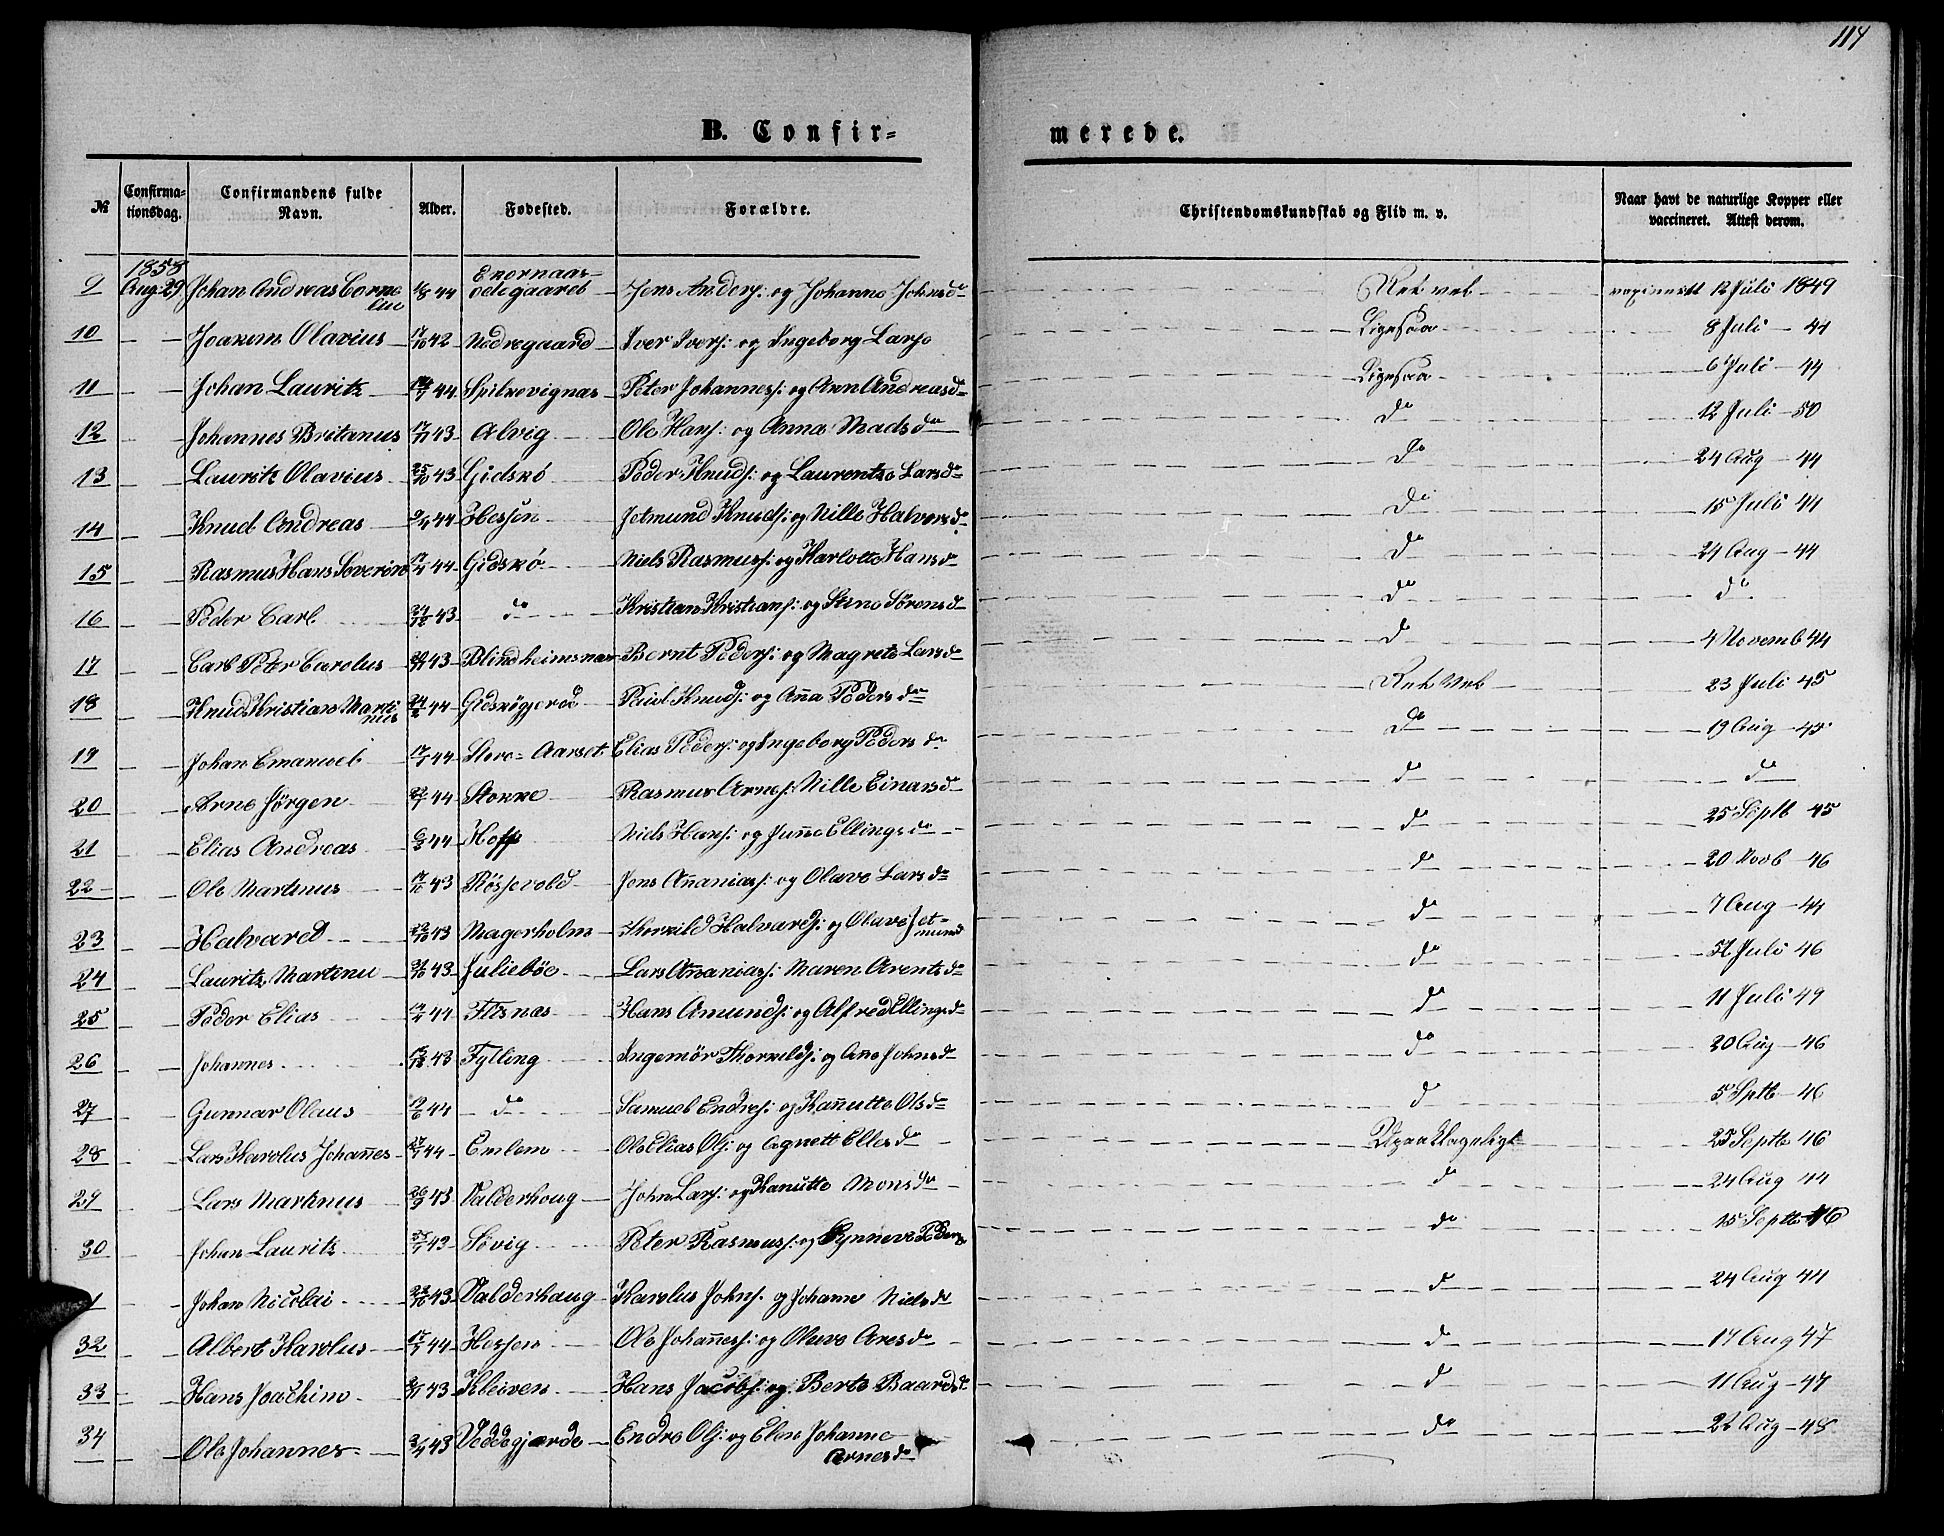 114
B. Confir=
merede.
№ Confirma=tionsdag. Confirmandens fulde Navn. Alder. Fødested. Forældre. Christendomskundskab og Flid m. v. Naar havt de naturlige Kopper eller vaccineret. Attest derom.
9 1858 Aug. 29 Johan Andreas Corne 44 Jens Anders: og Johanne Johnsd 12 Juli 1849
10 Joakem Olavius 42 Nedregaard Iver Ivers: og Ingeborg Larsd Ligesaa 8 Juli 44
11 Johan Lauritz 44 Spilkevignæs Peter Johanness: og Ann Andreasd Ligesaa 6 Juli 44
12 Johannes Britanus 17/11 43 Alvig Ole Hans: og Anna Madsd do 12 Juli 50
13 Lauritz Olavius 25/10 43 Gidskø Peder Knuds: og Laurentze Larsd do 24 Aug 44
14 Knud Andreas 44 Hessen Jetmund Knuds: og Nille Halversd do 15 Juli 44
15 Rasmus Hans Severin 44 Gidskø Niels Rasmuss: og Karlotte Hansd do 24 Aug 44
16 Peder Carl 43 do Kristian Kristians: og Stine Sørensd do do
17 Carl Peter Carolus 43 Blindheimsnæs Bernt Peders: og Magrete Larsd do 4 Novemb 44
18 Knud Kristian Martinus 44 Paul Knuds: og Aña Pedersd 23 Juli 45
19 Johan Emanuel 44 Store=Aarset Elias Peders: og Ingeborg Pedersd do 19 Aug 45
20 Arne Jørgen 44 Stokke Rasmus Arnes: Nille Einarsd do do
21 Elias Andreas 44 Hoff Niels Hans: og Ellingsd do 25 Septb 45
22 Ole Martinus 43 Røssevold Jens Añanias: og Olave Larsd do 20 Novb 46
23 Halvard 43 Magerholm Thorkild Halvards: og Olave Jetmund do 7 Aug 44
24 Lauritz Martinu 43 Juliebøe Lars Añanias: Maren Arentsd do Juli 46
25 Peder Elias 44 Flisnæs Hans Amunds: og Alfred Ellingsd do 11 Juli 49
26 Johannes 43 Fylling Ingemór Thorkilds: og Añe Johnsd do 20 Aug 46
27 Gunnar Olaus 44 do Samuel Endres: og Kañutte Olsd do 5 Sptb 46
28 Lars Karolus Johañes 44 Emlem Ole Elias Ols: og Agnett Ellesd Upaaklageligt 25 Septb 46
29 Lars Martinus 43 Valderhoug John Lars: og Kanutte Monsd do 24 Aug 44
30 Johan Lauritz 43 Søvig Peter Rasmuss: og Synneve do 15 Septb 46
1 Johan Nicolai 43 Valderhaug Karolus Johns: og Johane Nielsd do 24 Aug 44
32 Albert Karolus 44 Hessen Ole Johañess: og Olave Aresd do 17 Aug 47
33 Hans Joachim 43 Kleiven Hans Jacobs: og Berte Baardsd do 11 Aug 47
34 Ole Johannes 43 Veddegjerde Endre Ols: og Elen Johanne Arnesd do 22 Aug 48